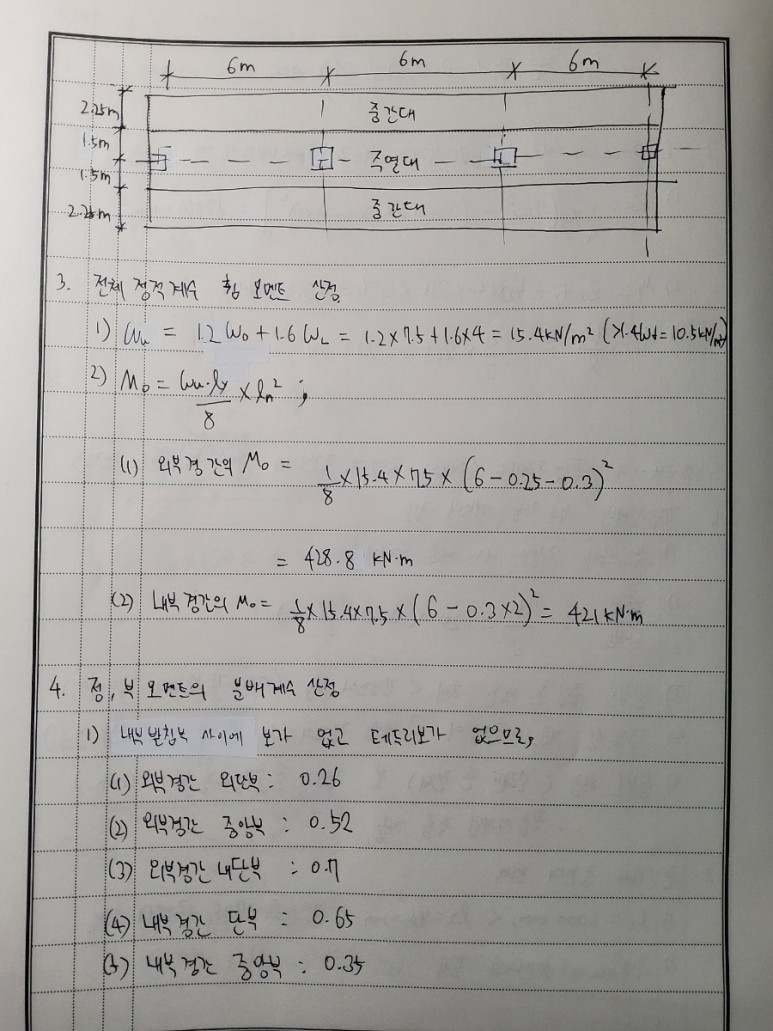 6m 6m 6m
2.25m 중간대
1.5m 주열대
1.5m
2.25m 중간대
3. 전체 정적계수 휨 모멘트 산정
1) Wu = 1.2 WD + 1.6 WL = 1.2×7.5 + 1.6×4 = 15.4kN/m² (>1.4Wd = 10.5kN/m²)
2) Mo = Wu·ly/8 × ln² ;
(1) 외부경간의 Mo = 1/8 × 15.4 × 7.5 × (6 - 0.25 - 0.3)²
= 428.8 kN·m
(2) 내부경간의 Mo = 1/8 × 15.4×7.5 × (6 - 0.3×2)² = 421 kN·m
4. 정, 부 모멘트의 분배계수 산정
1) 내부받침부 사이에 보가 없고 테두리보가 없으므로,
(1) 외부경간 외단부 : 0.26
(2) 외부경간 중앙부 : 0.52
(3) 외부경간 내단부 : 0.7
(4) 내부경간 단부 : 0.65
(5) 내부경간 중앙부 : 0.35